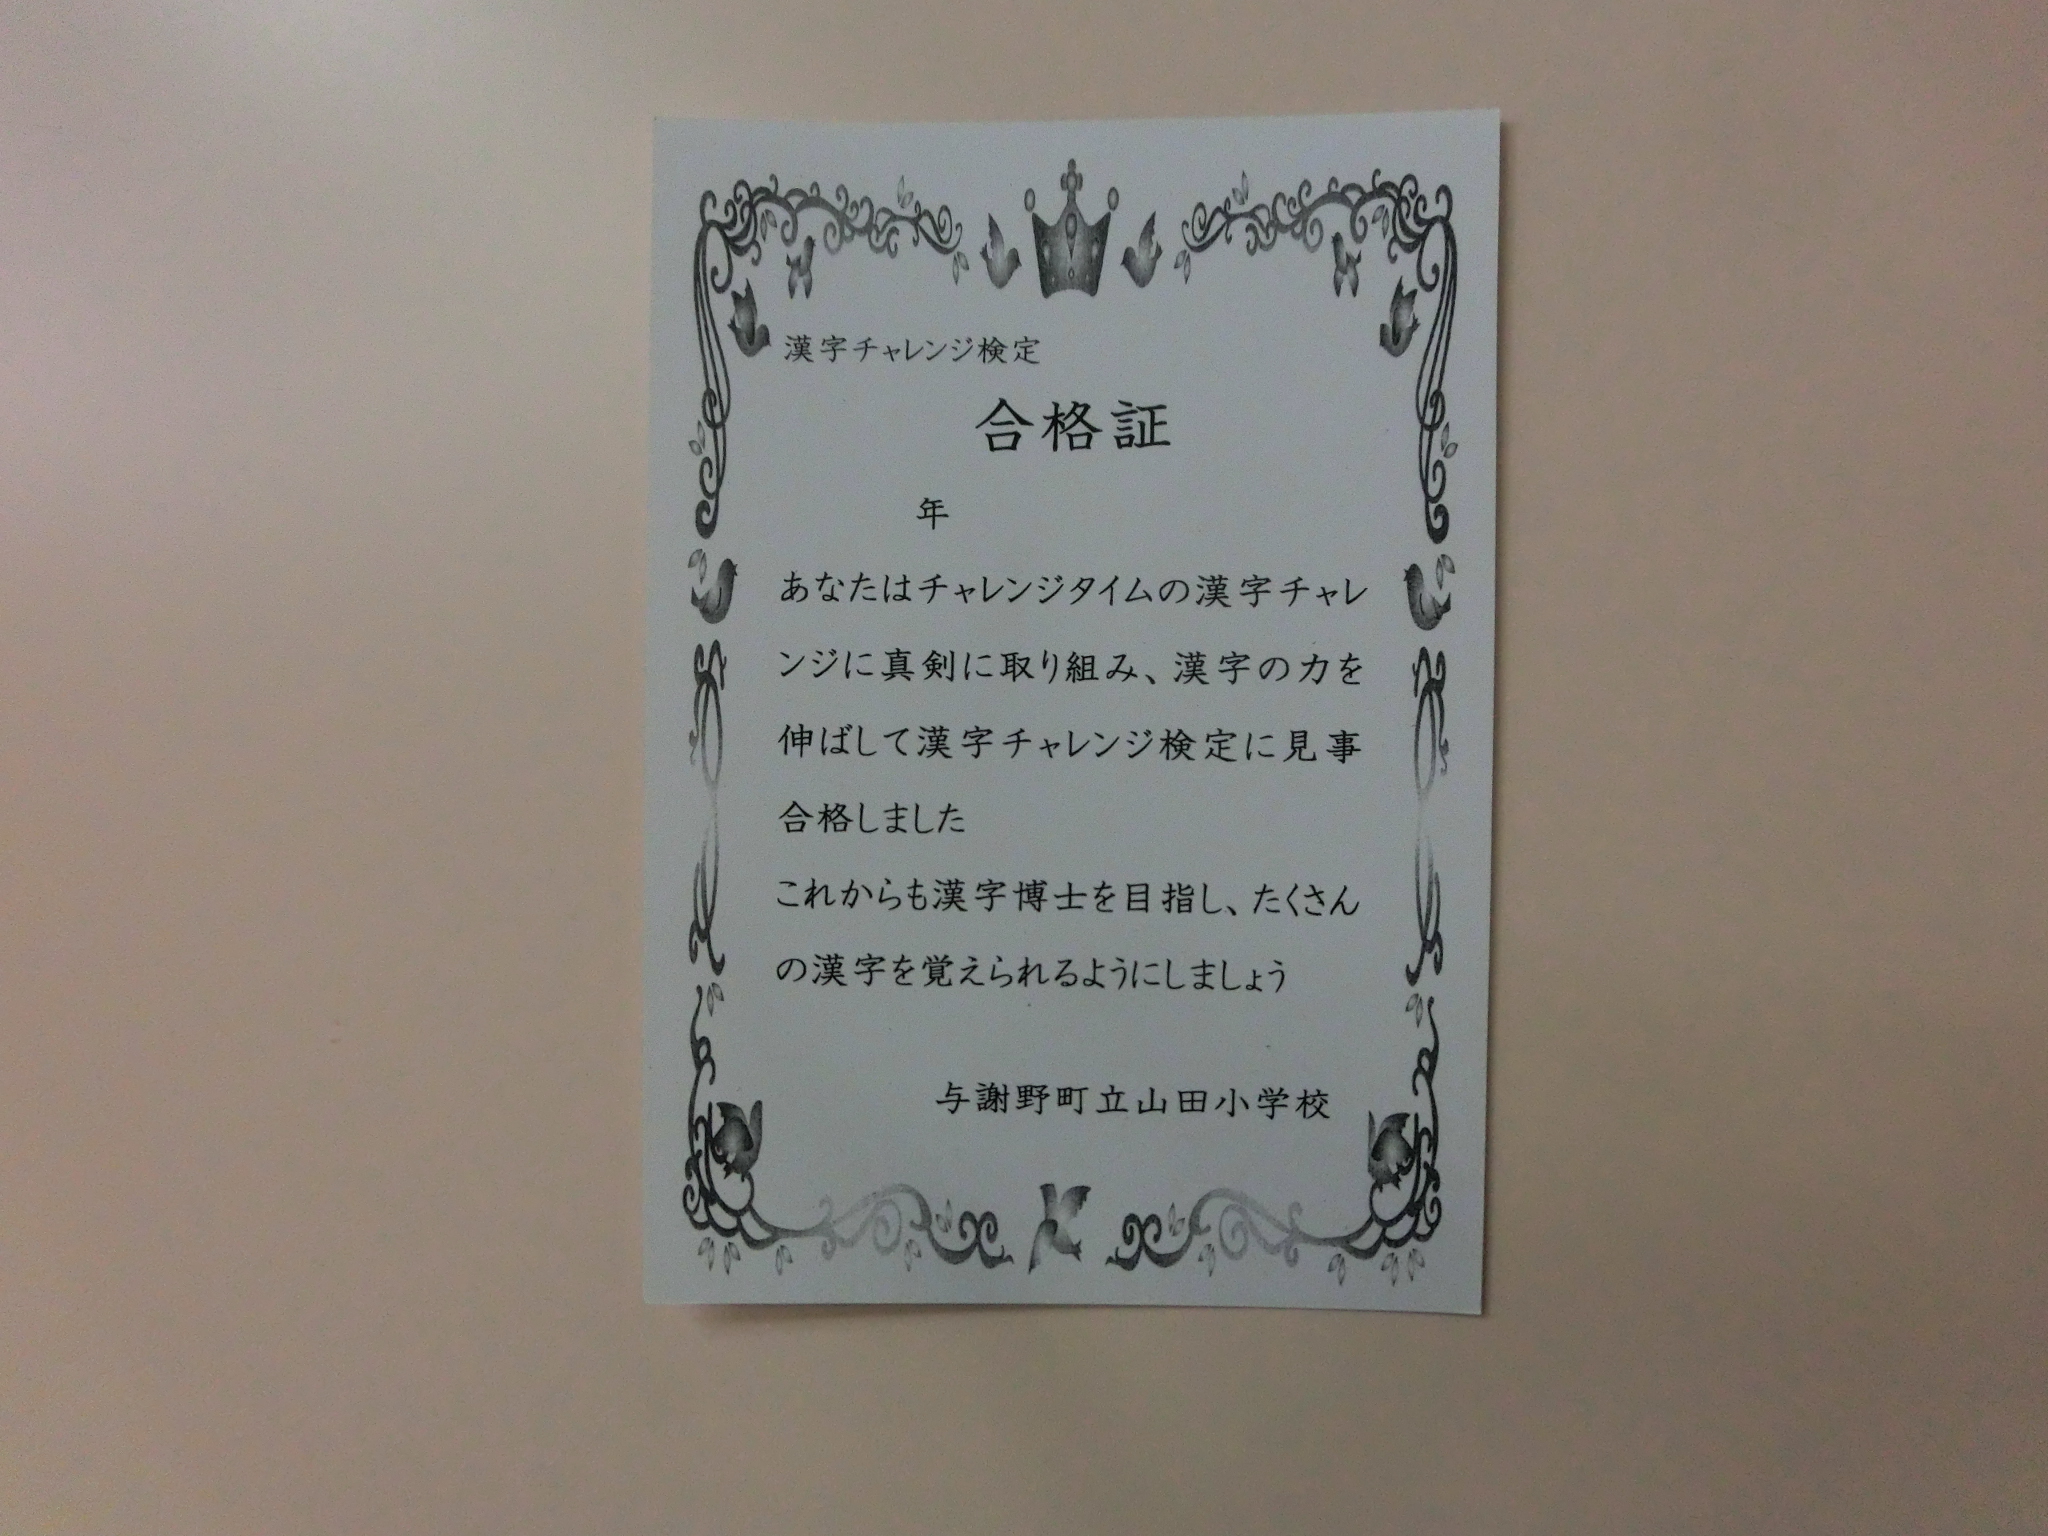 漢字チャレンジ検定
合格証
年
あなたはチャレンジタイムの漢字チャレ
ンジに真剣に取り組み、漢字の力を
伸ばして漢字チャレンジ検定に見事
合格しました
これからも漢字博士を目指し、たくさん
の漢字を覚えられるようにしましょう
与謝野町立山田小学校